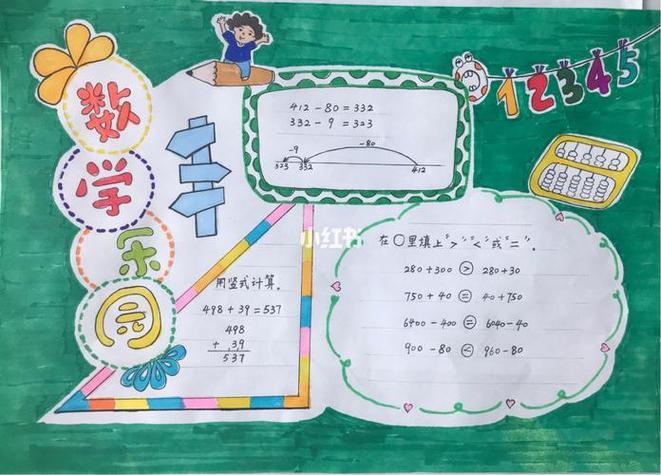 数学乐园
1 2 3 4 5
412 - 80 = 332
332 - 9 = 323
-9
-80
323 332 412
小红书
用竖式计算。
498 + 39 = 537
498
+ 39
537
在○里填上“>”“<”或“=”。
280 + 300 > 280 + 30
750 + 40 = 40 + 750
6400 - 400 = 6040 - 40
900 - 80 < 960 - 80